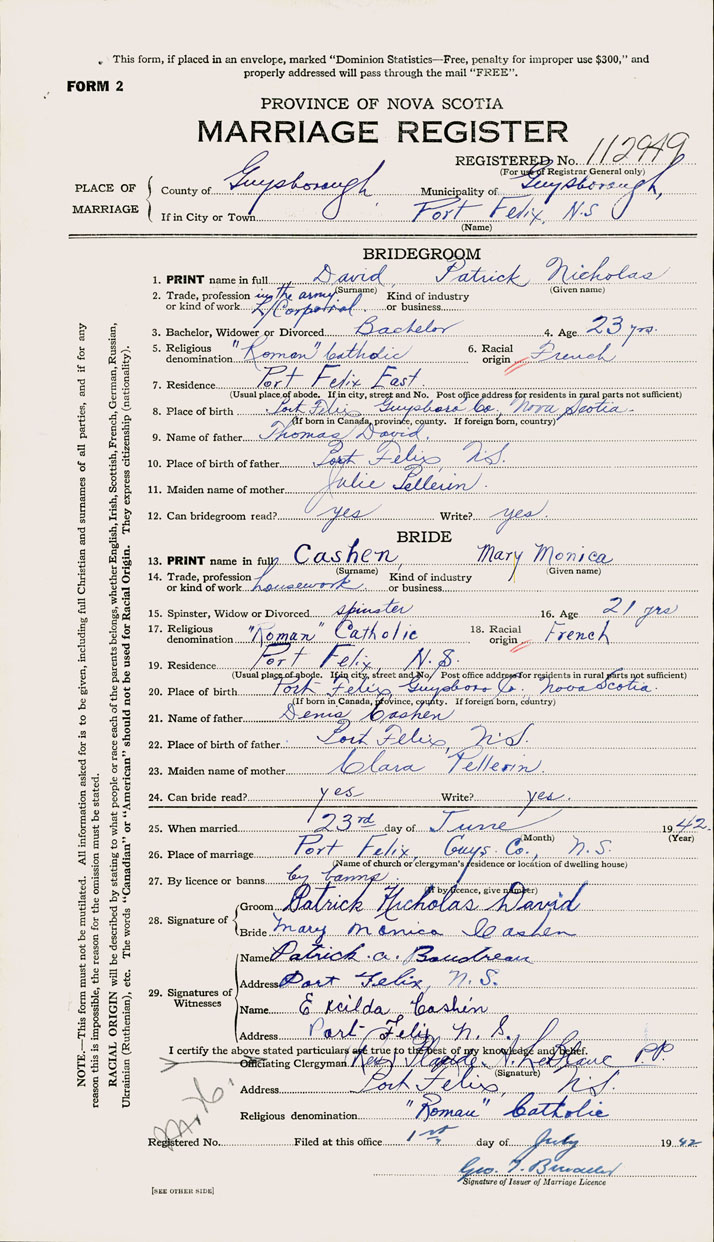 This form, if placed in an envelope, marked "Dominion Statistics—Free, penalty for improper use $300," and
properly addressed will pass through the mail "FREE".
FORM 2
PROVINCE OF NOVA SCOTIA
MARRIAGE REGISTER
REGISTERED No. 112949
(For use of Registrar General only)
PLACE OF MARRIAGE
County of Guysborough Municipality of Guysborough,
If in City or Town Port Felix, N.S
(Name)
BRIDEGROOM
1. PRINT name in full David, Patrick Nicholas
(Surname) (Given name)
2. Trade, profession or kind of work in the army L/Corporal Kind of industry or business
3. Bachelor, Widower or Divorced Bachelor 4. Age 23 yrs.
5. Religious denomination "Roman" Catholic 6. Racial origin French
7. Residence Port Felix East.
(Usual place of abode. If in city, street and No. Post office address for residents in rural parts not sufficient)
8. Place of birth Port Felix Guysboro Co, Nova Scotia.
(If born in Canada, province, county. If foreign born, country)
9. Name of father Thomas David.
10. Place of birth of father Port Felix, N.S.
11. Maiden name of mother Julie Pellerin.
12. Can bridegroom read? yes Write? yes.
BRIDE
13. PRINT name in full Cashen, Mary Monica
(Surname) (Given name)
14. Trade, profession or kind of work housework Kind of industry or business
15. Spinster, Widow or Divorced spinster 16. Age 21 yrs
17. Religious denomination "Roman" Catholic 18. Racial origin French
19. Residence Port Felix, N.S.
(Usual place of abode. If in city, street and No. Post office address for residents in rural parts not sufficient)
20. Place of birth Port Felix Guysboro Co. Nova Scotia.
(If born in Canada, province, county. If foreign born, country)
21. Name of father Denis Cashen
22. Place of birth of father Port Felix, N.S.
23. Maiden name of mother Clara Pellerin.
24. Can bride read? yes Write? yes.
25. When married 23rd day of June 1942.
(Month) (Year)
26. Place of marriage Port Felix, Guys. Co., N.S.
(Name of church or clergyman's residence or location of dwelling house)
27. By licence or banns by banns.
(If by licence, give number)
28. Signature of
Groom Patrick Nicholas David
Bride Mary Monica Cashen
29. Signatures of Witnesses
Name Patrick a. Boudreau
Address Port Felix, N.S.
Name Exilda Cashen
Address Port Felix N.S.
I certify the above stated particulars are true to the best of my knowledge and belief.
Officiating Clergyman Rev. LeBlanc P.P.
(Signature)
Address Port Felix, N.S
Religious denomination "Roman" Catholic
Registered No. Filed at this office 1st day of July 1942
Geo. T.
Signature of Issuer of Marriage Licence
[SEE OTHER SIDE]
NOTE.—This form must not be mutilated. All information asked for is to be given, including full Christian and surnames of all parties, and if for any
reason this is impossible, the reason for the omission must be stated.
RACIAL ORIGIN will be described by stating to what people or race each of the parents belongs, whether English, Irish, Scottish, French, German, Russian,
Ukrainian (Ruthenian), etc. The words "Canadian" or "American" should not be used for Racial Origin. They express citizenship (nationality).